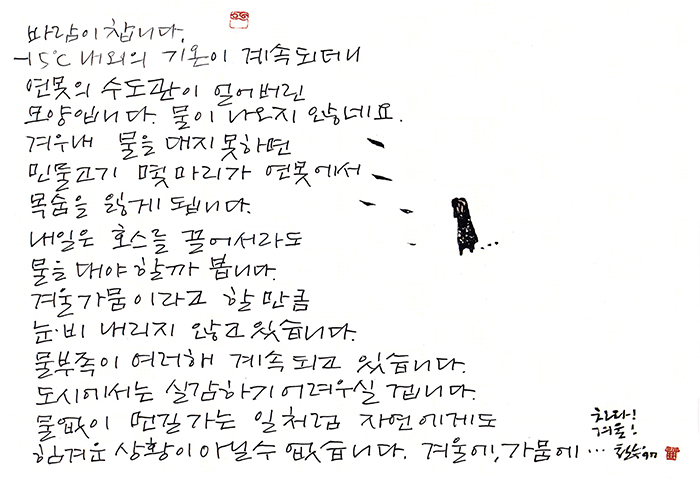 바람이 찹니다.
-15℃ 내외의 기온이 계속되더니
연못의 수도관이 얼어버린
모양입니다. 물이 나오지 않네요.
겨우내 물을 대지 못하면
민물고기 몇 마리가 연못에서
목숨을 잃게 됩니다.
내일은 호스를 끌어서라도
물을 대야 할까 봅니다.
겨울가뭄이라고 할 만큼
눈·비 내리지 않고 있습니다.
물부족이 여러해 계속되고 있습니다.
도시에서는 실감하기 어려우실 겁니다.
물없이 먼길 가는 일처럼 자연에게도
힘겨운 상황이 아닐수 없습니다. 겨울에, 가뭄에…
차다!
겨울!
철수 97